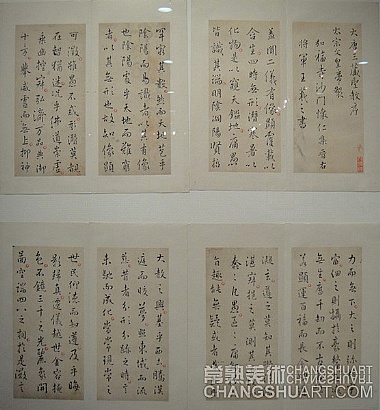 大唐三藏聖教序
太宗文皇帝製
弘福寺沙門懷仁集晉右
將軍王羲之書
蓋聞二儀有像顯覆載以
含生四時無形潛寒暑以
化物是以窺天鑑地庸愚
皆識其端明陰洞陽賢哲
罕窮其數然而天地苞乎
陰陽而易識者以其有像
也陰陽處乎天地而難窮
者以其無形也故知像顯
可徵雖愚不惑形潛莫覩
在智猶迷況乎佛道崇虛
乘幽控寂弘濟万品典御
十方舉威靈而無上抑神
力而無下大之則弥
宙細之則攝於毫釐
無生歷千劫而不
若顯運百福而長
凝玄遵之莫知其
湛寂挹之莫測其
蠢凡愚區區庸
旨趣能無疑惑者
大教之興基乎西土騰漢
庭而皎夢照東域而流
慈昔者分形分跡之時言
未馳而成化當常現常之
世民仰德而知遵及乎晦
影歸真遷儀越世金容掩
色不鏡三千之光麗象開
圖空端四八之相於是微言
常熟美術
CHANGSHUART